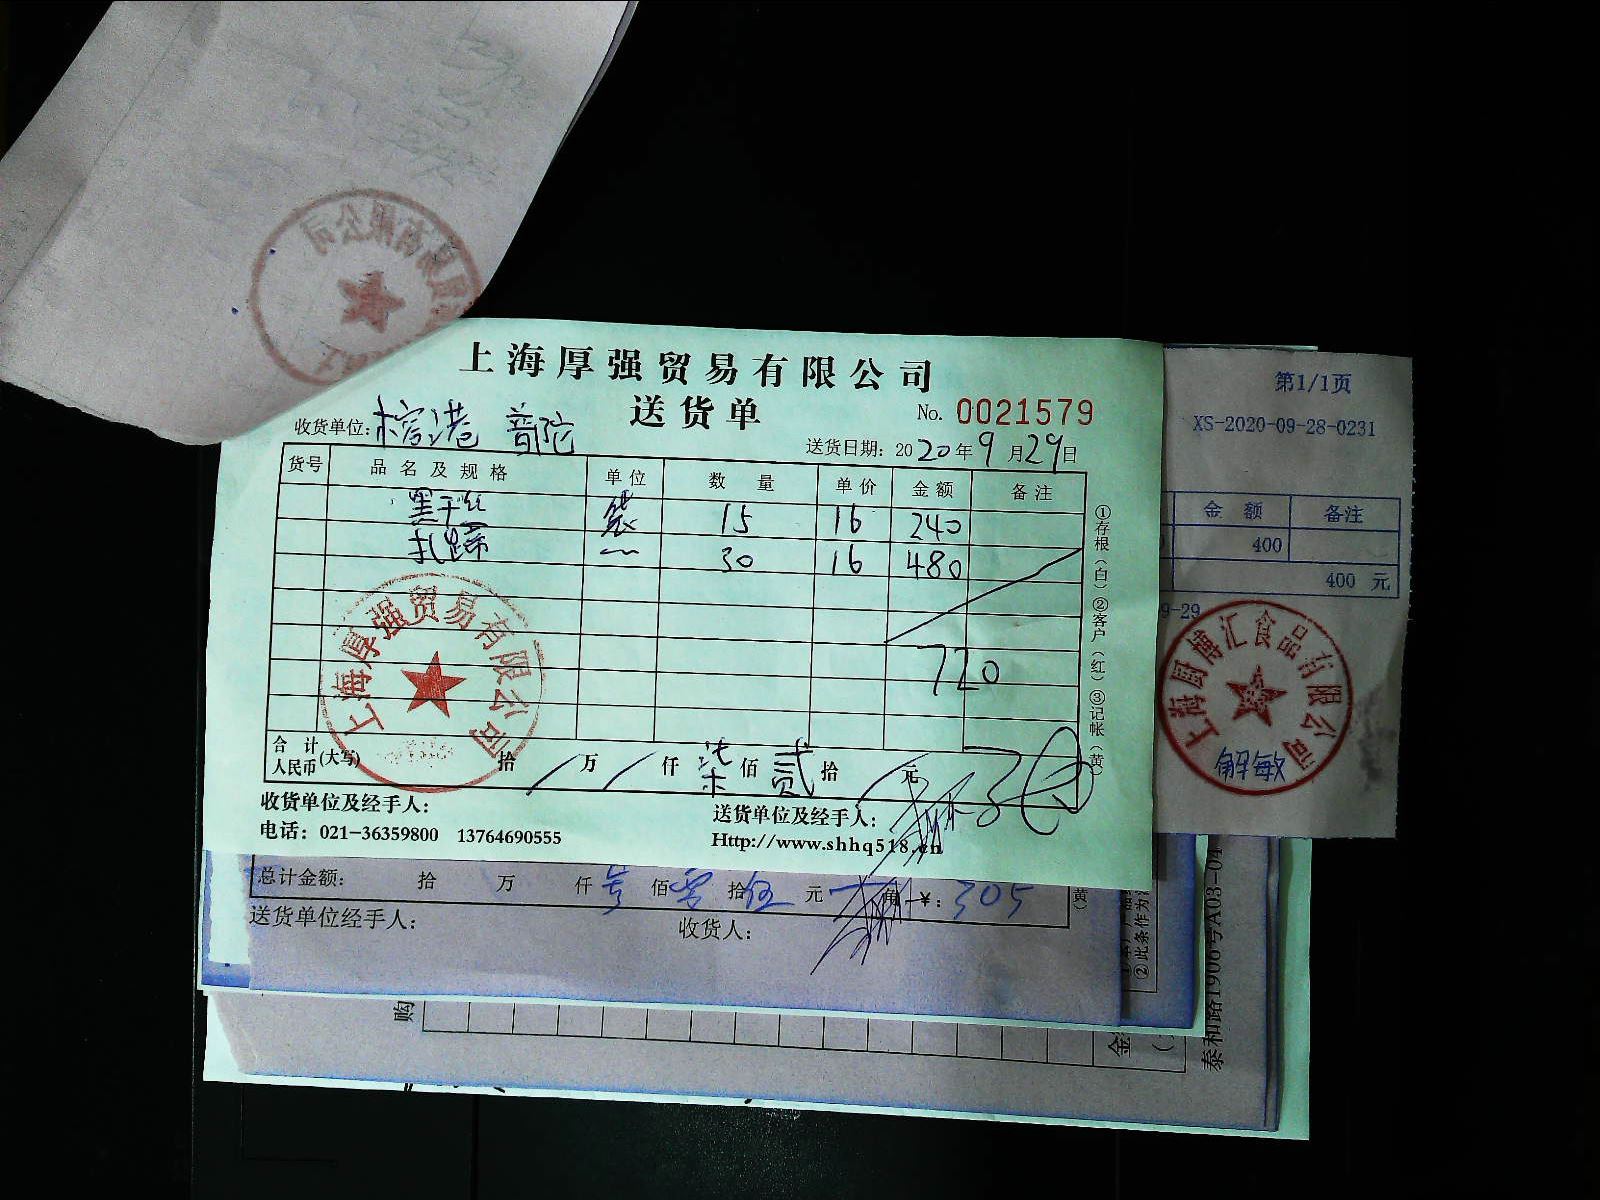 上海厚强贸易有限公司
送货单
No. 0021579
收货单位: 榕港 普陀
送货日期: 2020年9月29日
货号 品名及规格 单位 数量 单价 金额 备注
黑干丝 袋 15 16 240
扎蹄 〃 30 16 480
720
合计人民币(大写) 拾 / 万 / 仟 柒 佰 贰 拾 / 元
收货单位及经手人:
送货单位及经手人:
电话: 021-36359800 13764690555
Http://www.shhq518.cn
①存根(白)②客户(红)③记帐(黄)
上海厚强贸易有限公司
第1/1页
XS-2020-09-28-0231
金额 备注
400
400 元
9-29
上海厨博汇食品有限公司
解敏
总计金额: 拾 万 仟 佰 零 拾 伍 元 角 ¥: 305
送货单位经手人:
收货人:
②此条作为
泰和路1906号A03-04
购
金